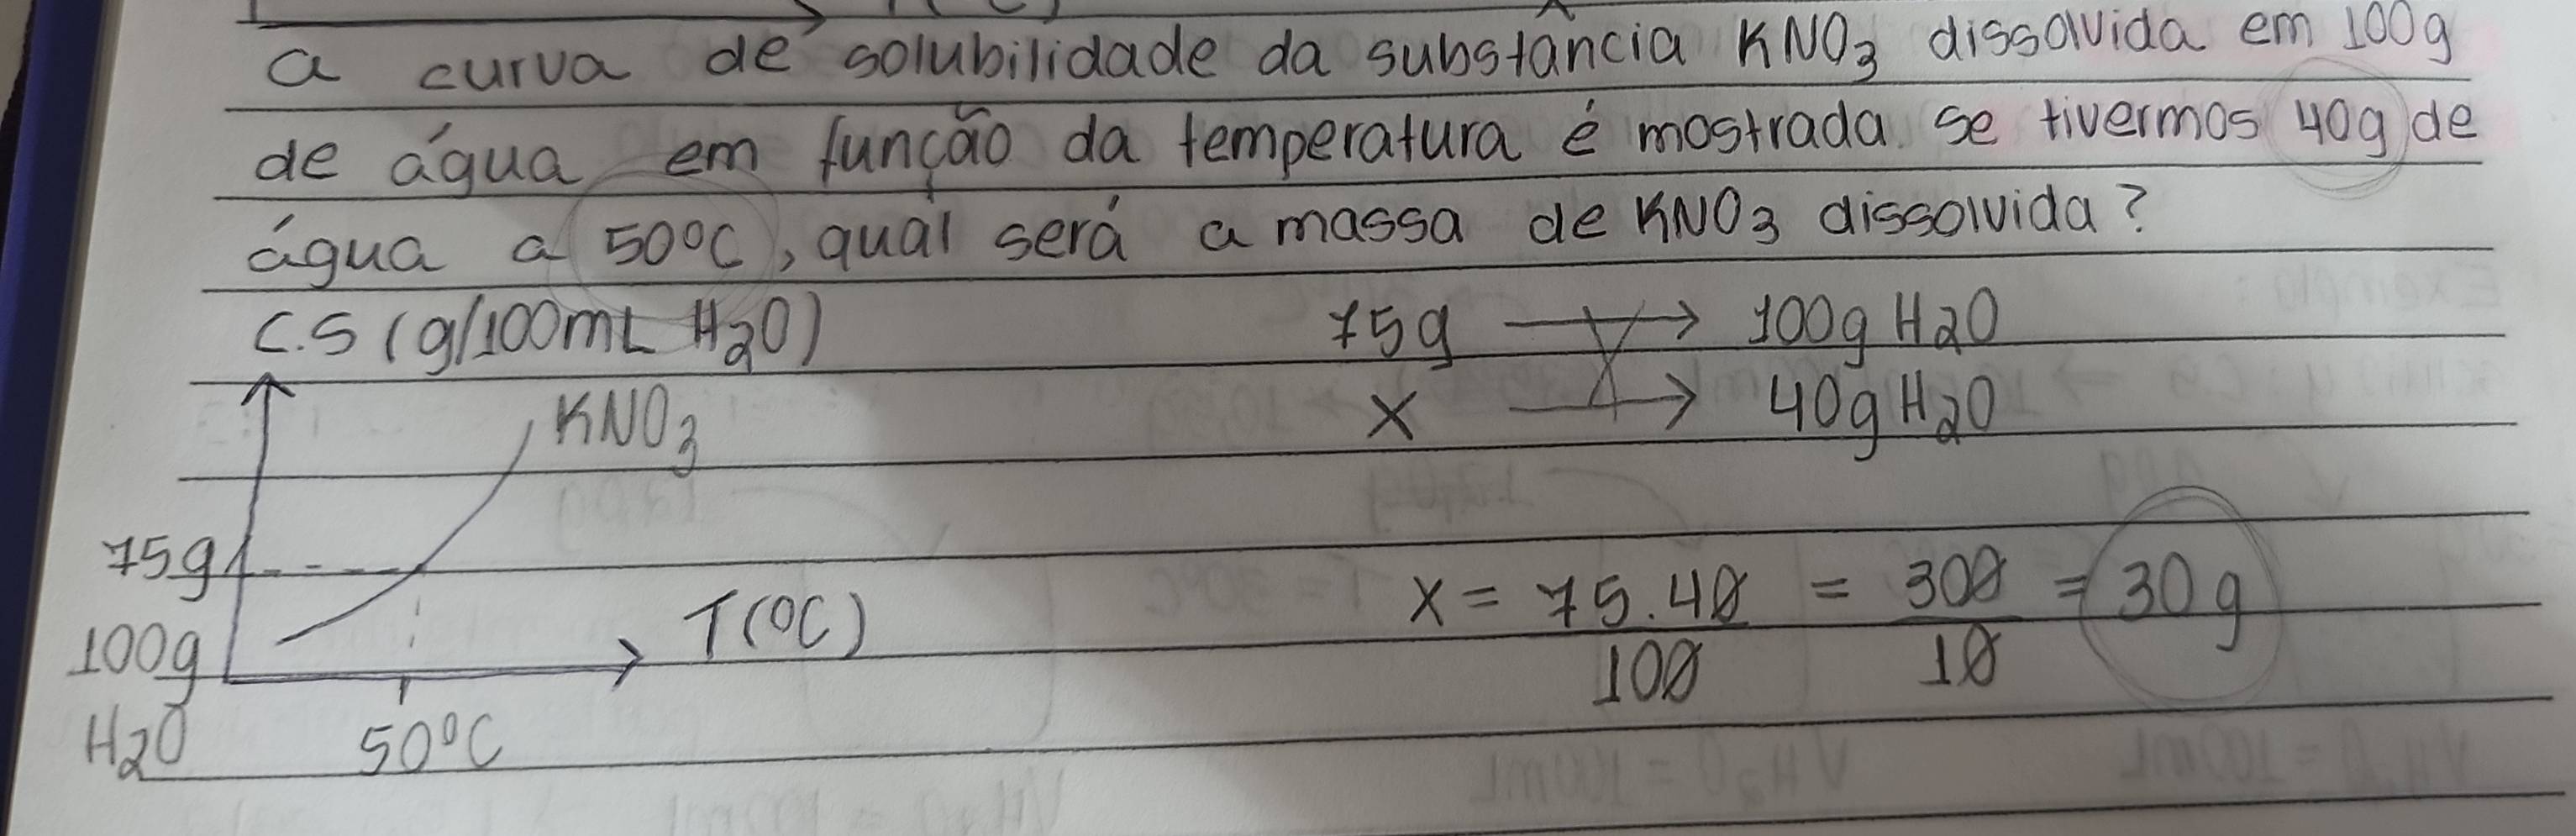 a curva de solubilidade da substância KNO3 dissolvida em 100g
de água em função da temperatura é mostrada. se tivermos 40g de
água a 50°C, qual será a massa de KNO3 dissolvida?
C.S (g/100mL H2O)
KNO3
75g
100g
H2O
50°C
T(°C)
75g → 100g H2O
X → 40g H2O
X = 75.40 = 300 = 30g
100 10